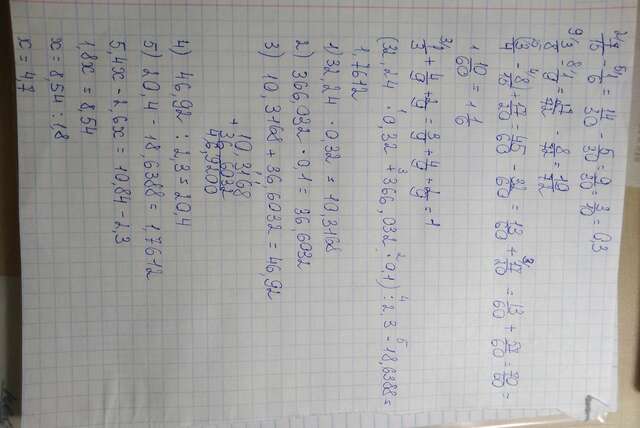 7/15 - 1/6 = 14/30 - 5/30 = 9/30 = 3/10 = 0,3
3/8 - 1/9 = - 8/72 =
(3/4 - 8/15) + 17/20 = 45/60 - 32/60 = 13/60 + 17/20 = 13/60 + 51/60 = 70/60 =
1 10/60 = 1 1/6
1/3 + 4/9 + 2/9 = 3/9 + 4/9 + 2/9 = 1
(32,24 · 0,32 + 366,032 · 0,1) : 2,3 - 18,6388 =
1,7612
1) 32,24 · 0,32 = 10,3168
2) 366,032 · 0,1 = 36,6032
3) 10,3168 + 36 6032 = 46,92
10 3168
+ 36 6032
46,9200
4) 46,92 : 2,3 = 20,4
5) 20,4 - 18,6388 = 1,7612
5,4x - 3,6x = 10,84 - 2,3
1,8x = 8,54
x = 8,54 : 1,8
x = 4,7